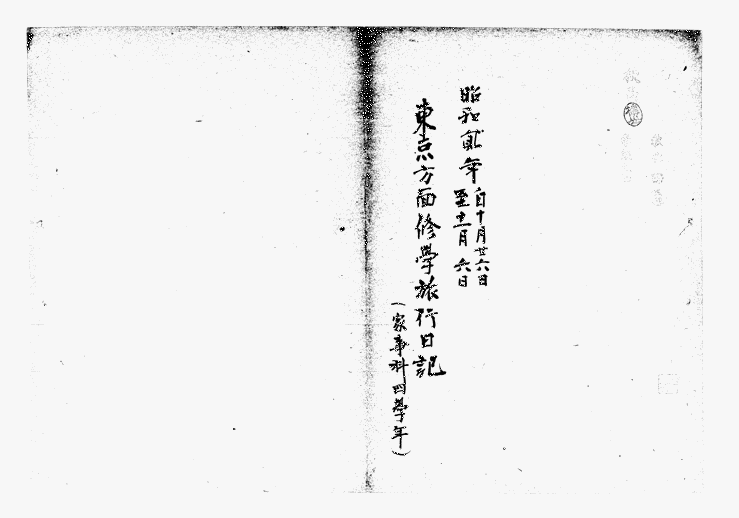 昭和貳年
自十月廿六日
至十一月六日
東京方面修學旅行日記
(家事科四學年)